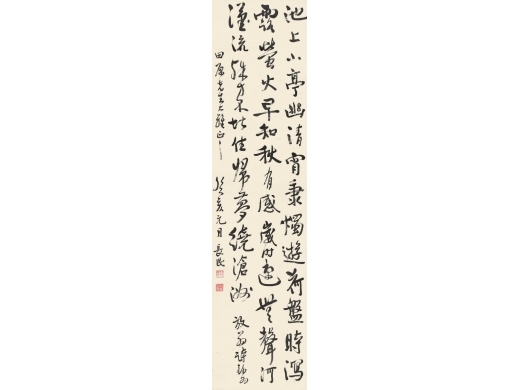 池上小亭幽清宵秉燭遊荷盤時瀉
露螢火早知秋有感歲時速無聲河
漢流殊方不堪住歸夢繞滄洲 放翁詩
田原先生大雅正之 癸亥元月